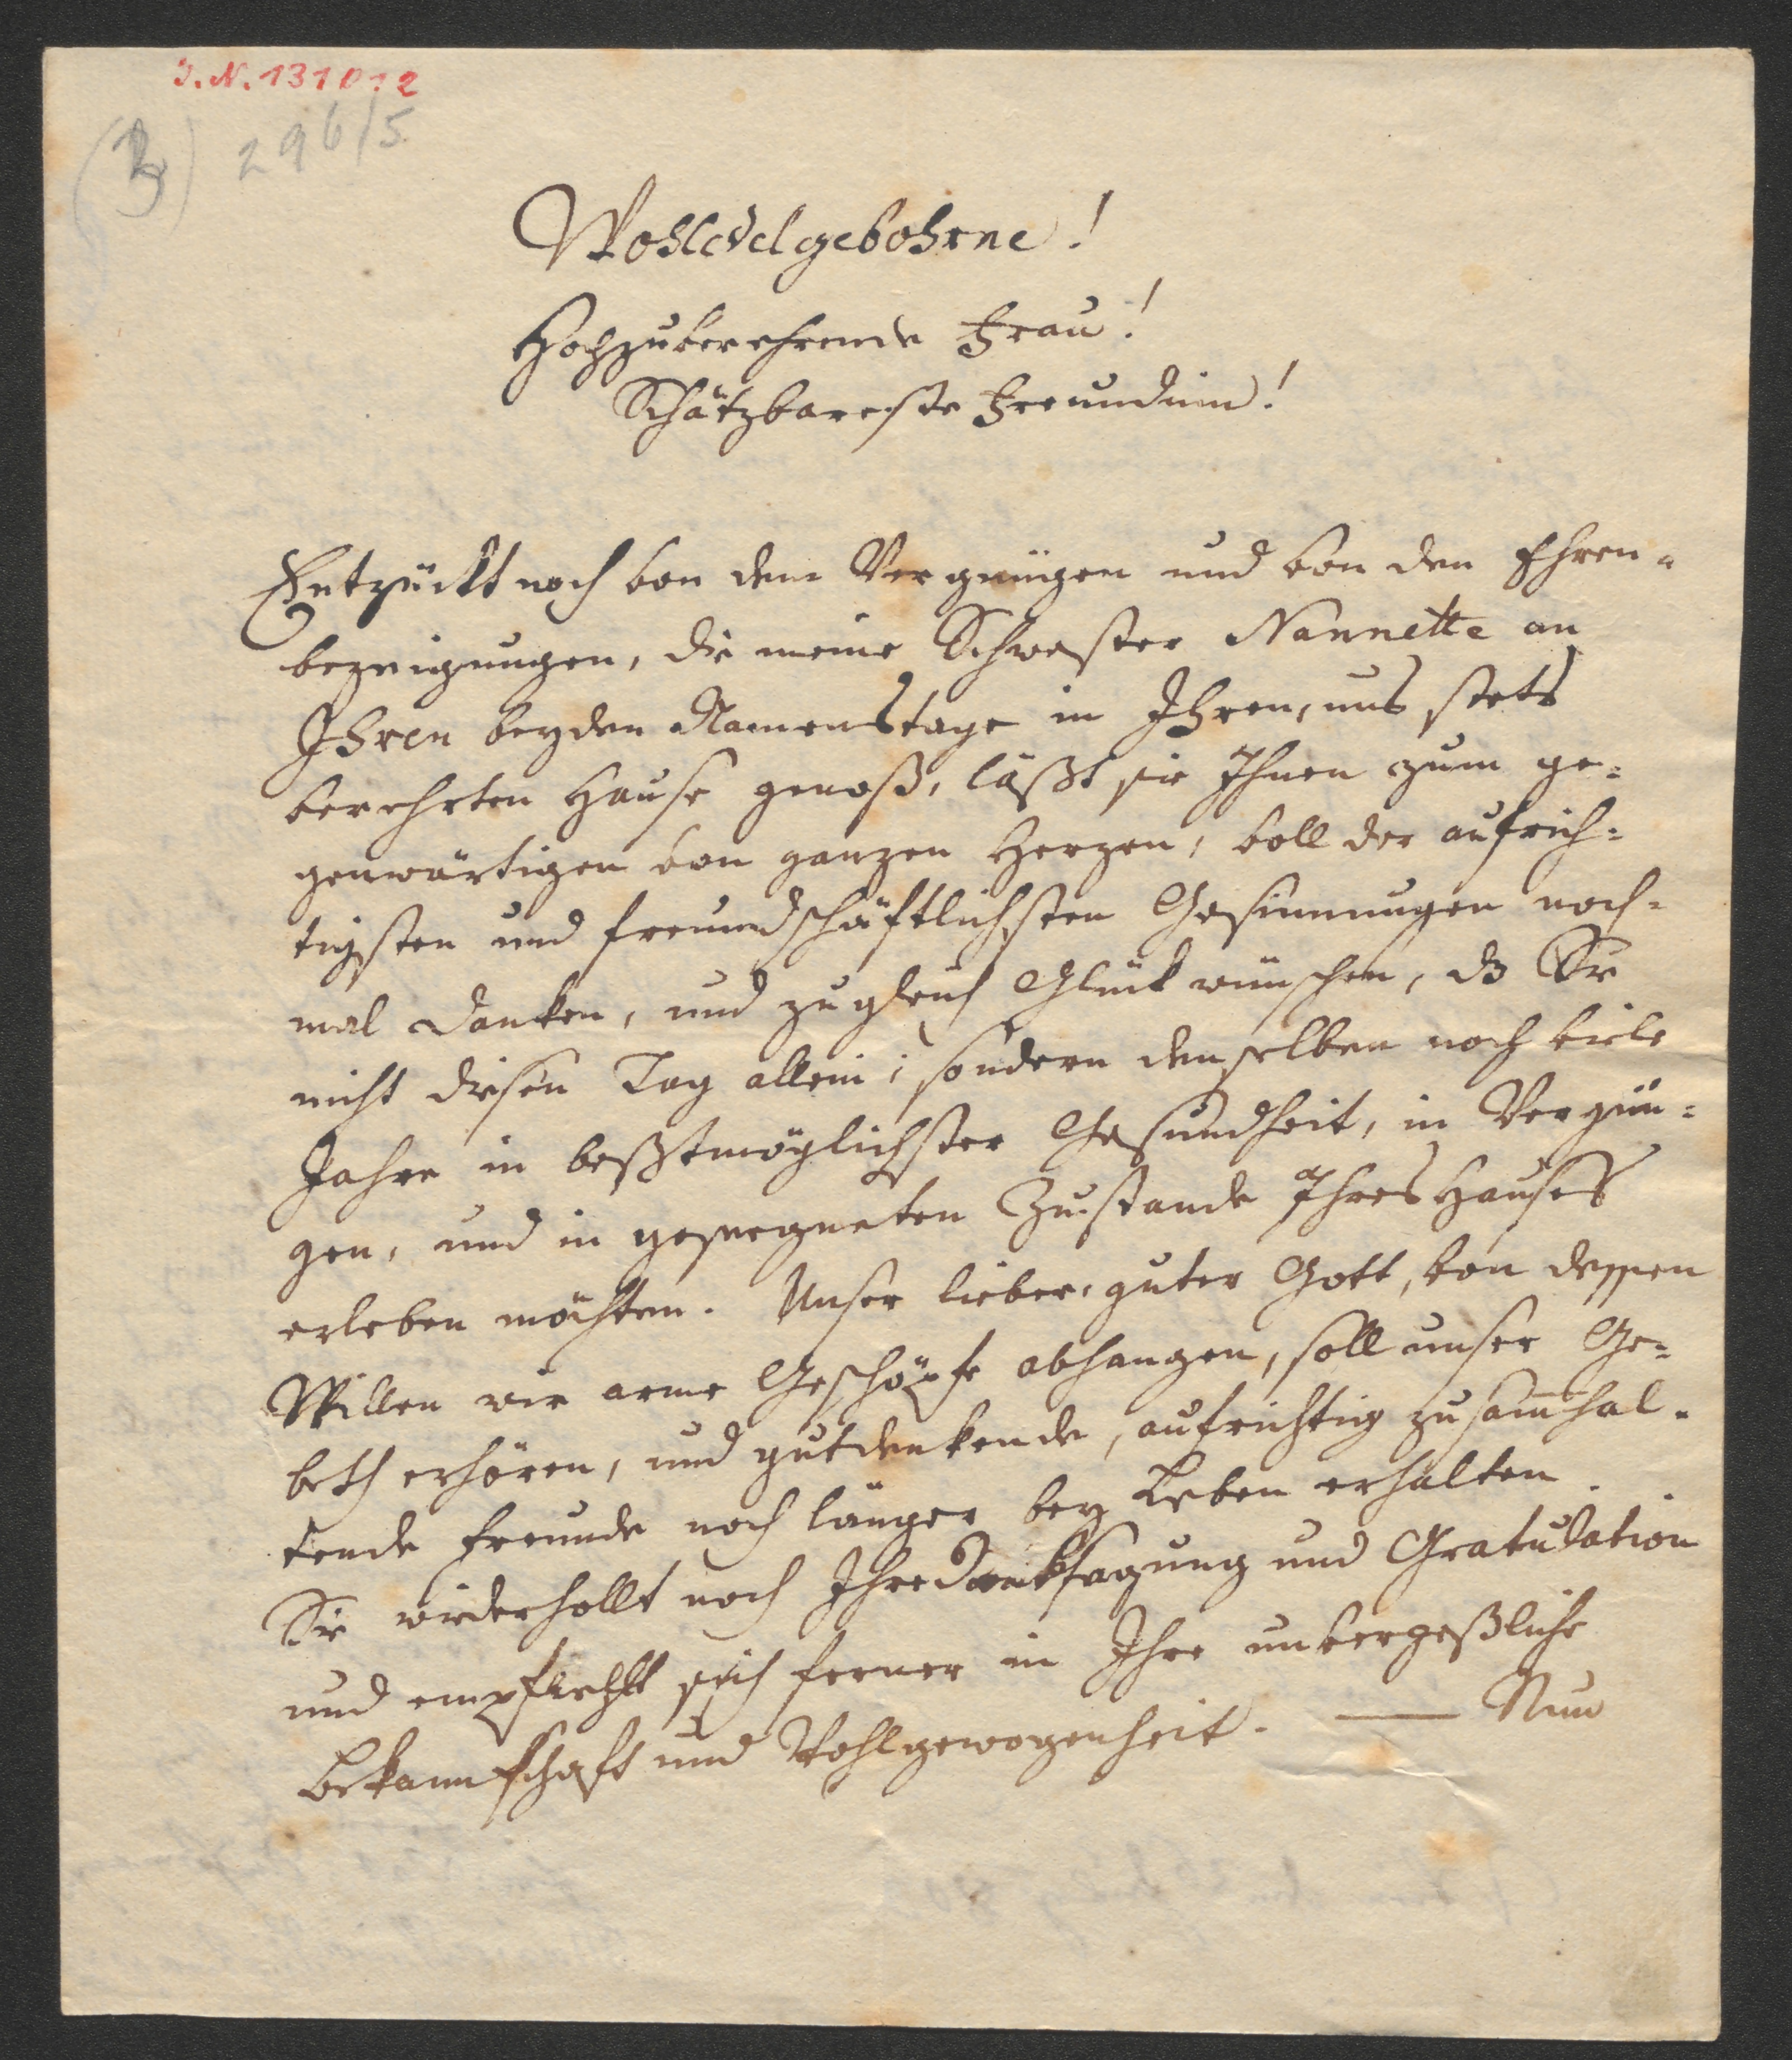 I. N. 131012
(3) 296/5
Wohledelgebohrne!
Hochzuverehrende Frau!
Schätzbareste Freundinn!
Entzückt noch von dem Vergnügen und von den Ehren-
bezeigungen, die meine Schwester Nannette an
Ihren beyden Namenstage in Ihren, uns stets
verehrten Hause genoß, läßt sie Ihnen zum ge-
genwärtigen von ganzen Herzen, voll der aufrich-
tigsten und freundschäftlichsten Gesinnungen noch-
mal danken, und zugleich Glück wünschen, dß Sie
nicht diesen Tag allein; sondern denselben noch viele
Jahre in beßtmöglichster Gesundheit, in Vergnü-
gen, und in gesegneten Zustande Ihres Hauses
erleben möchten. Unser lieber, guter Gott, von dessen
Willen wir arme Geschöpfe abhangen, soll unser Ge-
beth erhören, und gutdenkende, aufrichtig zusam̄hal-
tende Freunde noch länger bey Leben erhalten.
Sie wiederhollt noch Ihre Danksagung und Gratulation
und empfiehlt sich ferner in Ihre unvergeßliche
Bekanntschaft und Wohlgewogenheit. — Nun